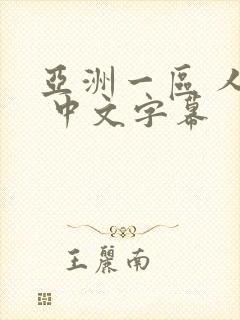 亞洲一區 人
中文字幕
王麗南